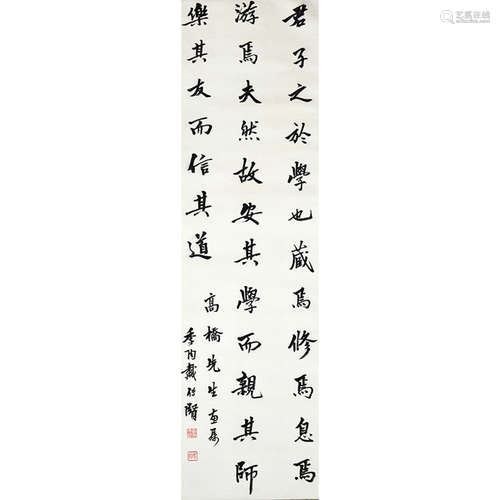 君子之於學也藏焉修焉息焉
游焉夫然故安其學而親其師
樂其友而信其道
高橋先生
季陶戴傳賢